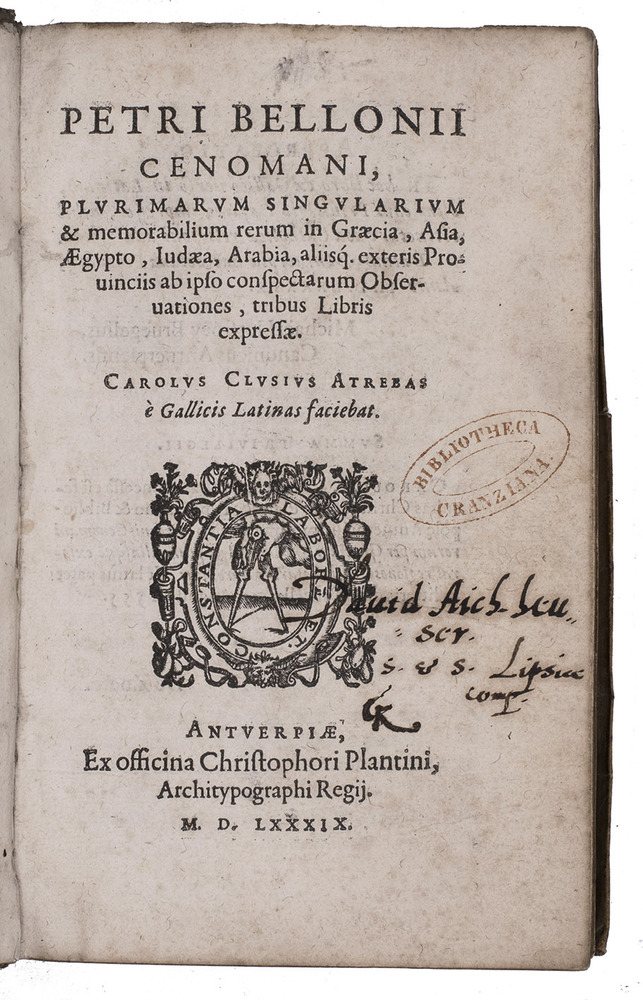 PETRI BELLONII
CENOMANI,
PLVRIMARVM SINGVLARIVM
& memorabilium rerum in Græcia, Aſia,
Ægypto, Iudæa, Arabia, aliisq́. exteris Pro-
uinciis ab ipſo conſpectarum Obſer-
uationes, tribus Libris
expreſſæ.
CAROLVS CLVSIVS ATREBAS
è Gallicis Latinas faciebat.
BIBLIOTHECA
CRANZIANA.
LABORE ET CONSTANTIA
David
scr.
s. & s. Lipsiae
comp.
ANTVERPIÆ,
Ex officina Chriſtophori Plantini,
Architypographi Regij.
M. D. LXXXIX.